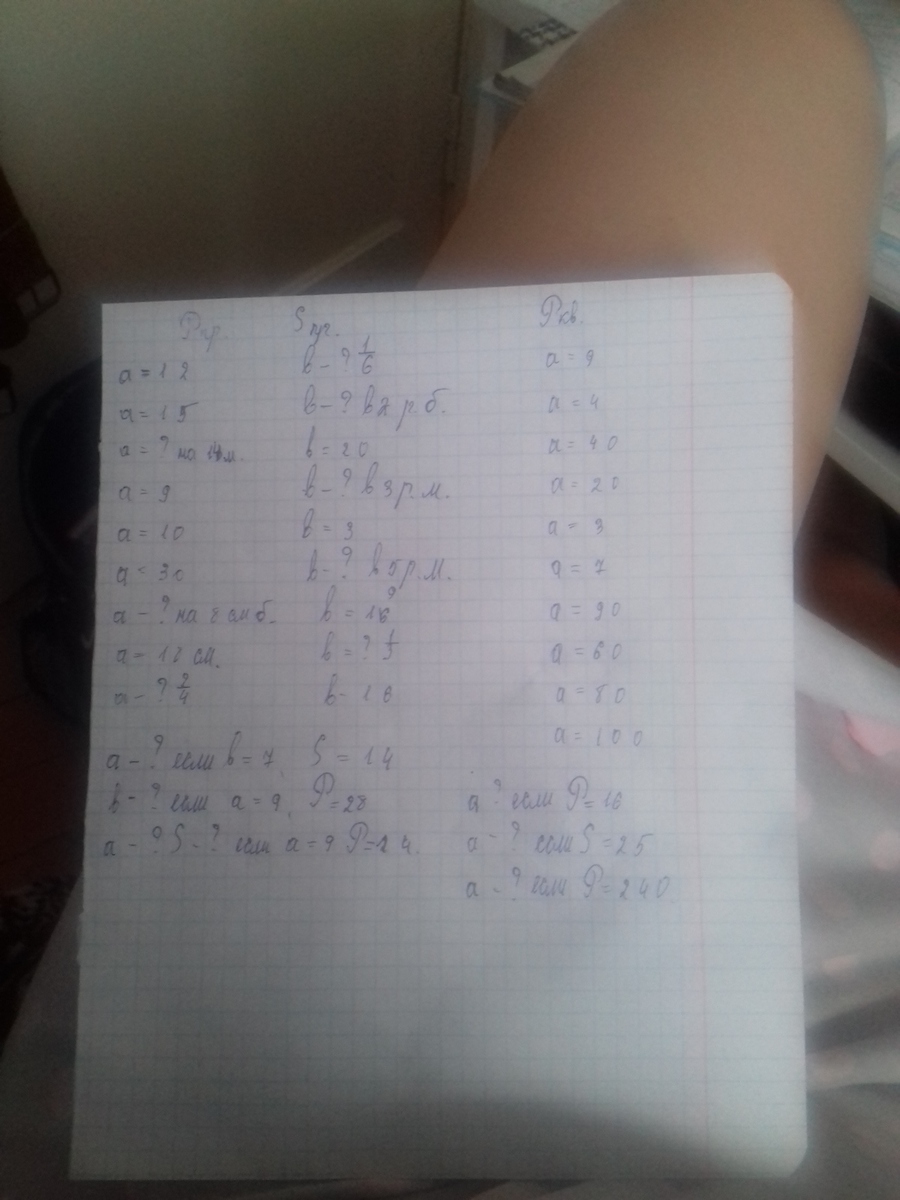 Рпр. Sпр. Ркв.
a = 12 b - ? 1/6 a = 9
a = 15 b - ? в 2 р. б. a = 4
a = ? на 14 м. b = 20 a = 40
a = 9 b - ? в 3 р. м. a = 20
a = 10 b = 3 a = 3
a = 30 b - ? в 5 р. м. a = 7
a - ? на 8 см б. b = 16 a = 90
a = 18 см. b = ? a = 60
a - ? 2/4 b - 16 a = 80
a = 100
a - ? если b = 7, S = 14
b - ? если a = 9, P = 28 a ? если P = 16
a - ? S - ? если a = 9 P = 24. a - ? если S = 25
a - ? если P = 240